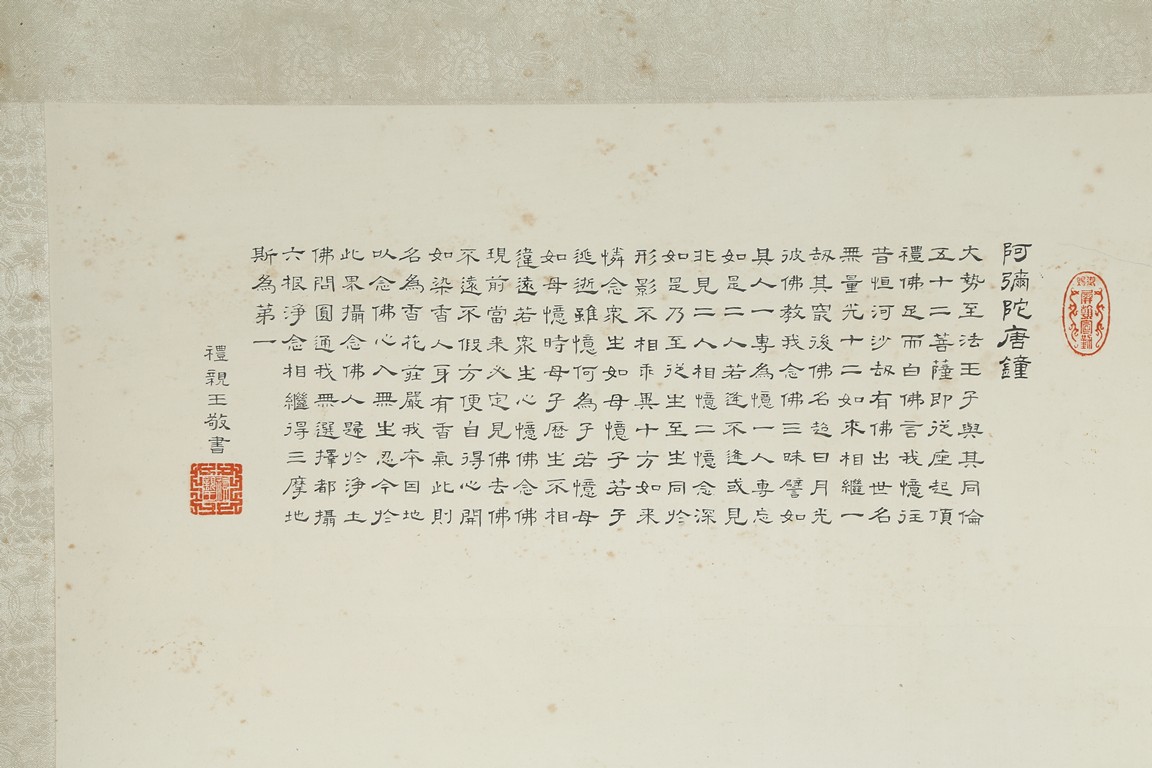 阿彌陀唐鐘
大勢至法王子與其同倫
五十二菩薩即從座起頂
禮佛足而白佛言我憶往
昔恒河沙劫有佛出世名
無量光十二如來相繼一
劫其最後佛名超日月光
彼佛教我念佛三昧譬如
具人一專為憶一人專忘
如是二人若逢不逢或見
非見二人相憶二憶念深
如是乃至從生至生同於
形影不相乖異十方如來
憐念衆生如母憶子若子
逃逝雖憶何為子若憶母
如母憶時母子歷生不相
違遠若衆生心憶佛念佛
現前當來必定見佛去佛
不遠不假方便自得心開
如染香人身有香氣此則
名為香花莊嚴我本因地
以念佛心入無生忍今於
此果攝念佛人歸於淨土
佛問圓通我無選擇都攝
六根淨念相繼得三摩地
斯為第一
禮親王敬書